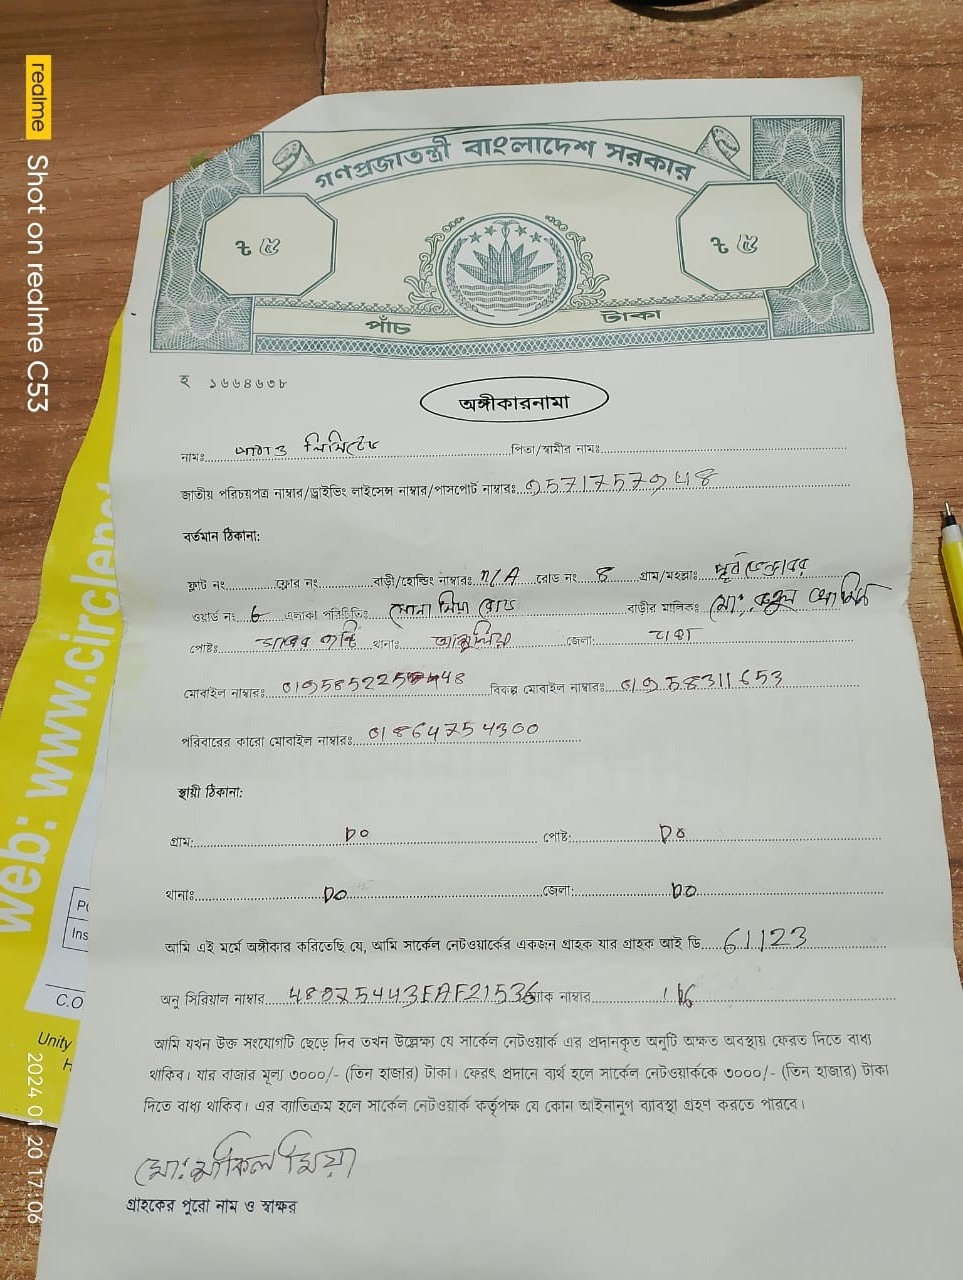 গণপ্রজাতন্ত্রী বাংলাদেশ সরকার
৳ ৫ ৳ ৫
পাঁচ টাকা
হ ১৬৬৪৬৩৮
অঙ্গীকারনামা
নামঃ লিমিটেড পিতা/স্বামীর নামঃ
জাতীয় পরিচয়পত্র নাম্বার/ড্রাইভিং লাইসেন্স নাম্বার/পাসপোর্ট নাম্বারঃ
বর্তমান ঠিকানা:
ফ্লাট নং ফ্লোর নং বাড়ী/হোল্ডিং নাম্বারঃ n/A রোড নং 8 গ্রাম/মহল্লাঃ পূর্ব
ওয়ার্ড নং 6 এলাকা পরিচিতিঃ সোনা মিয়া রোড বাড়ীর মালিকঃ মোঃ
পোষ্টঃ থানাঃ আশুলিয়া জেলা: ঢাকা
মোবাইল নাম্বারঃ বিকল্প মোবাইল নাম্বারঃ 01958311653
পরিবারের কারো মোবাইল নাম্বারঃ 01864754300
স্থায়ী ঠিকানা:
গ্রাম: DO পোষ্ট: DO
থানাঃ DO জেলা: DO
আমি এই মর্মে অঙ্গীকার করিতেছি যে, আমি সার্কেল নেটওয়ার্কের একজন গ্রাহক যার গ্রাহক আই ডি 61123
অনু সিরিয়াল নাম্বার 48575443EAF21536 ম্যাক নাম্বার
আমি যখন উক্ত সংযোগটি ছেড়ে দিব তখন উল্লেক্ষ্য যে সার্কেল নেটওয়ার্ক এর প্রদানকৃত অনুটি অক্ষত অবস্থায় ফেরত দিতে বাধ্য
থাকিব। যার বাজার মূল্য ৩০০০/- (তিন হাজার) টাকা। ফেরৎ প্রদানে ব্যর্থ হলে সার্কেল নেটওয়ার্ককে ৩০০০/- (তিন হাজার) টাকা
দিতে বাধ্য থাকিব। এর ব্যাতিক্রম হলে সার্কেল নেটওয়ার্ক কর্তৃপক্ষ যে কোন আইনানুগ ব্যাবস্থা গ্রহণ করতে পারবে।
মোঃ শাকিল মিয়া
গ্রাহকের পুরো নাম ও স্বাক্ষর
web: www.circlenet
Ins
C.O
Unity
realme Shot on realme C53
2024.01.20 17:06